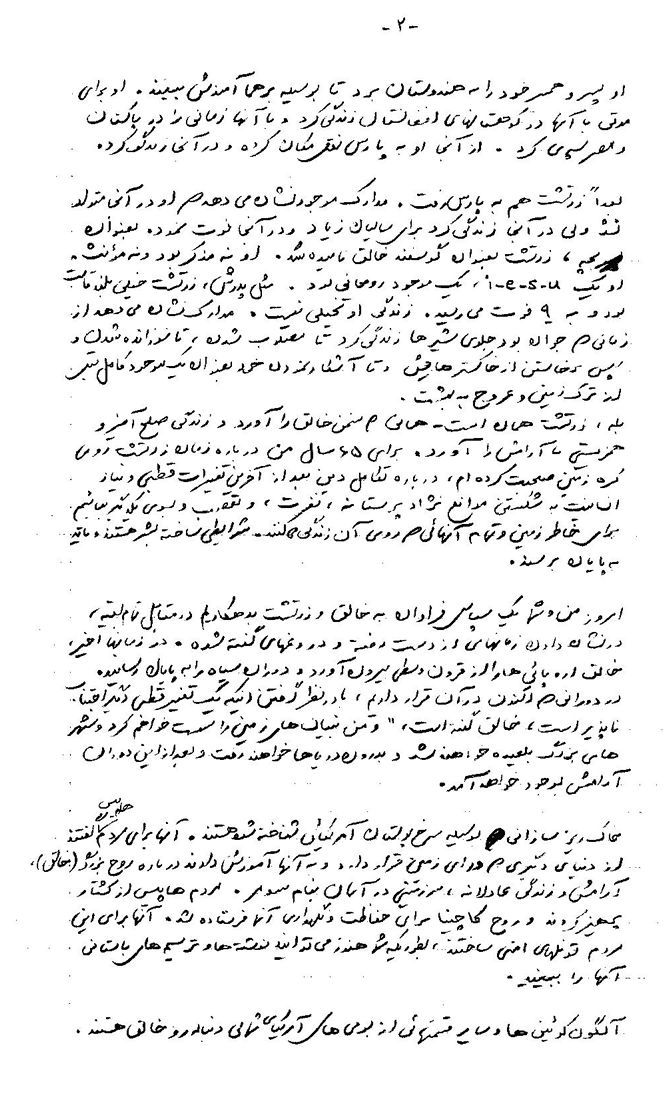 -۲-
او پسر و همسر خود را به هندوستان برد تا بوسیله برهما آموزش ببینند. او برای
مدتی با آنها در کوهستانهای افغانستان زندگی کرد و با آنها زمانی را در پاکستان
و مصر سپری کرد. از آنجا او به پارس نقل مکان کرده و در آنجا زندگی کرده
بعداً زرتشت هم به پارس رفت. مدارک موجود نشان می دهد که او در آنجا متولد
شد ولی در آنجا زندگی کرد برای سالیان زیاد و در آنجا فوت نموده بعنوان
زرتشت بعنوان گوسفند خالق نامیده شد. او نه مذکر بود ونه مؤنث.
او یک I-e-s-u، یک موجود روحانی بود. مثل پدرش، زرتشت خیلی بلند قامت
بود و به ۹ فوت می رسید. زندگی او تخیلی نیست. مدارک نشان می دهد از
زمانی که جوان بود جلوی شیرها زندگی کرد تا مصلوب شدن، تا سوزانده شدن و
سپس برخاستن از خاکسترهایش و تا آشکار نمودن خود بعنوان یک موجود کامل قبل
از ترک زمین و عروج به بهشت.
بله، زرتشت همان است - همانی که سخن خالق را آورد و زندگی صلح آمیز و
همزیستی با آرامش را آورد. برای ۶۵ سال من درباره زمان زرتشت روی
کره زمین صحبت کرده ام، درباره تکامل دین بعد از آخرین تغییرات قطبی و نیاز
انسانیت به شکستن موانع نژاد پرستانه، نفرت، و تعصب و بسوی یکدیگر بیائیم
برای خاطر زمین و تمام آنهائی که روی آن زندگی میکنند. شرایطی ساخته بشر هستند و باید
به پایان برسند.
امروز من و شما یک سپاس فراوان به خالق و زرتشت بدهکاریم در مقابل تمام
درنشان دادن زمانهای از دست رفته و دروغهای گفته شده. در زمانهای اخیر،
خالق اروپائی ها را از قرون وسطی بیرون آورد و دوران سیاه را به پایان رسانده
در دورانی که اکنون در آن قرار داریم، با در نظر گرفتن اینکه یک تغییر قطبی دیگر اجتناب
ناپذیر است، خالق گفته است، "و من بنیان های زمین را سست خواهم کرد و شهر
های بزرگ بلعیده خواهند شد و بدرون دریاها خواهند رفت و بعد از این دوران
آرامش بوجود خواهد آمد.
خاک ریز سازانی که بوسیله سرخ پوستان آمریکائی شناخته شده هستند. آنها برای مردم گفتند
از دنیای دیگری که ورای زمین قرار دارد و به آنها آموزش دادند درباره روح بزرگ (خالق)،
آرامش و زندگی عادلانه، سرزمینی در آسمان بنام سومر. مردم هاپس از کشتار
پرهیز کردند و روح کاچینا برای حفاظت و نگهداری آنها فرستاده شد. آنها برای این
مردم تونلهای امنی ساختند، بطوریکه شما هنوز می توانید نقشه ها و ترسیم های باستانی
آنها را ببینید.
آلگون کوئین ها و سایر قسمتهائی از بومی های آمریکای شمالی دنباله رو خالق هستند.